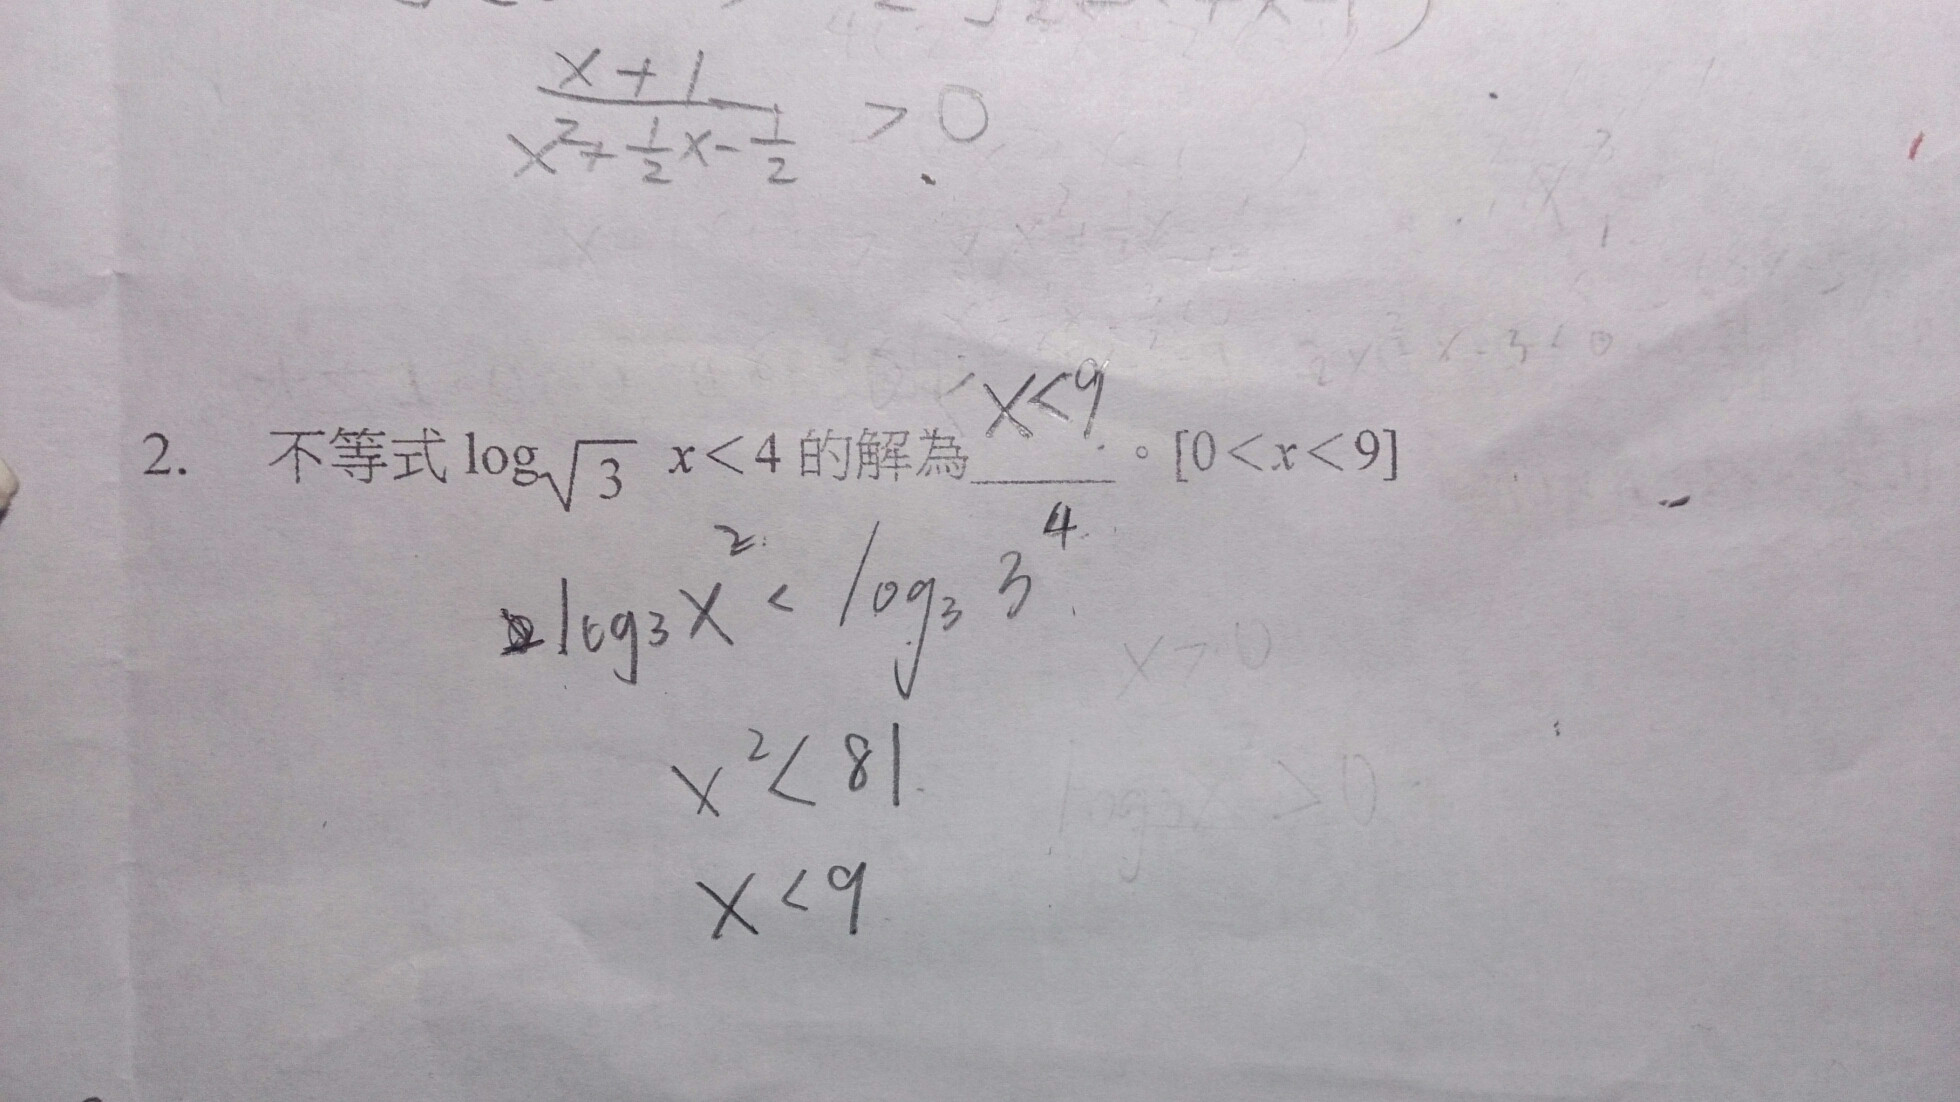 x+1
x²+½x-½ >0
2. 不等式 log√3 x<4 的解為 x<9 。[0<x<9]
log₃x² < log₃3⁴
x>0
x²<81
log₃x²>0
x<9